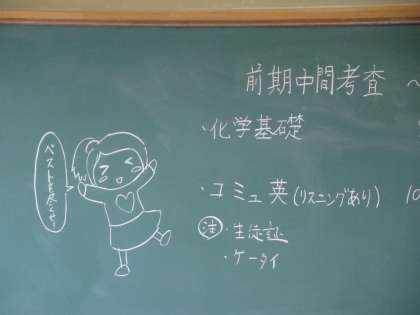 前期中間考査 ~
・化学基礎
・コミュ英(リスニングあり) 10
注・生徒証
・ケータイ
ベストを尽くせ!